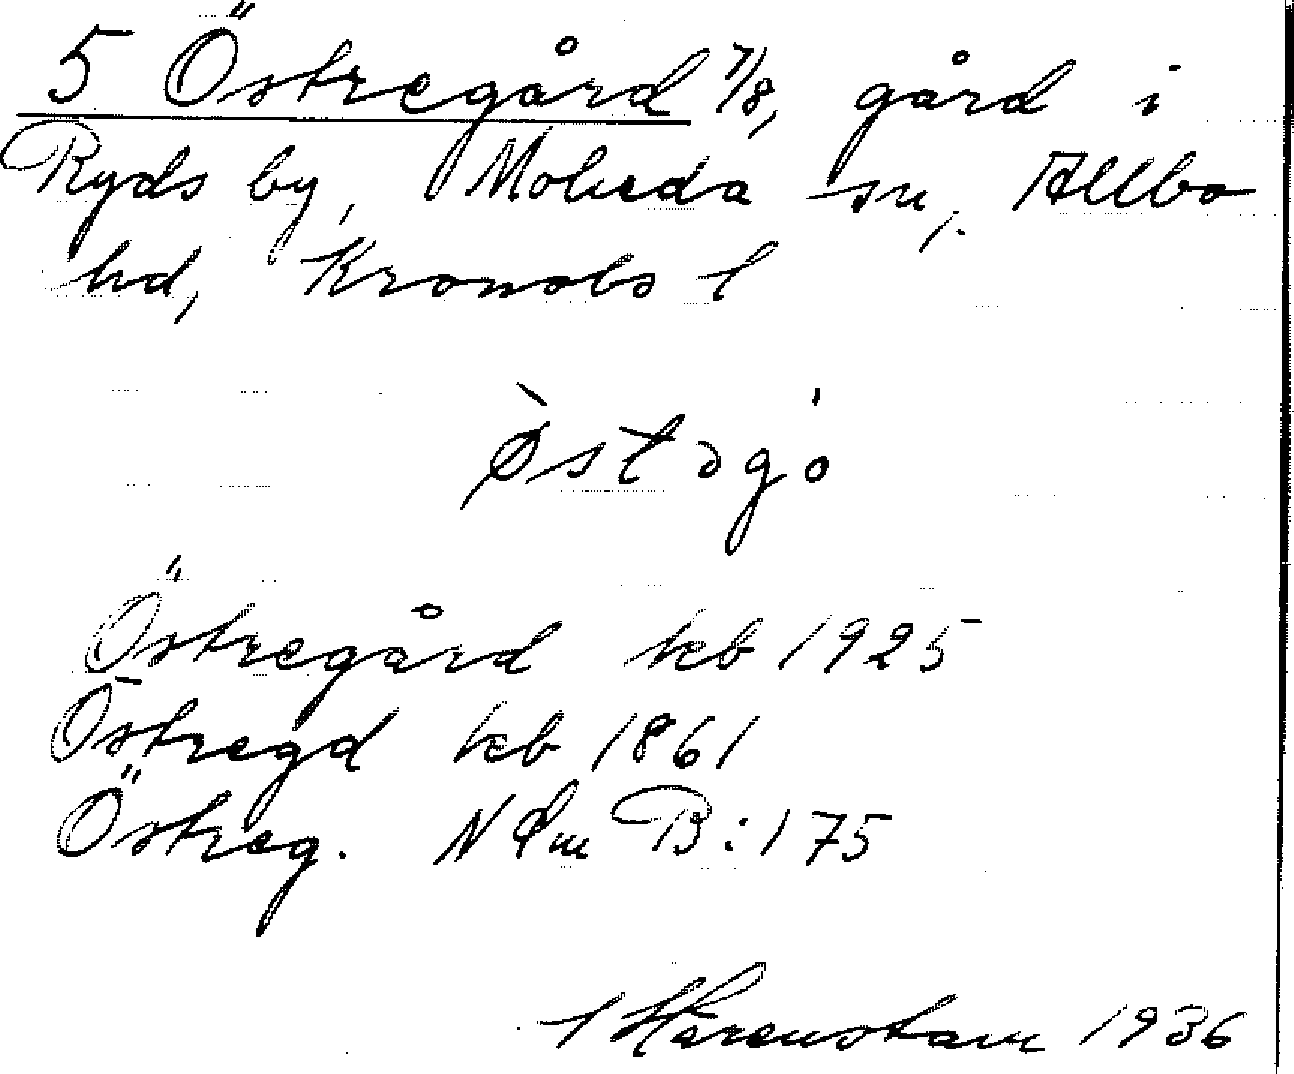 5 Östregård 7/8, gård i
Ryds by, Moheda sn, Allbo
hd, Kronobs l
ø̀stəgȯ
Östregård kb 1925
Östregd kb 1861
Östreg. N Lm B:175
Härenstam 1936